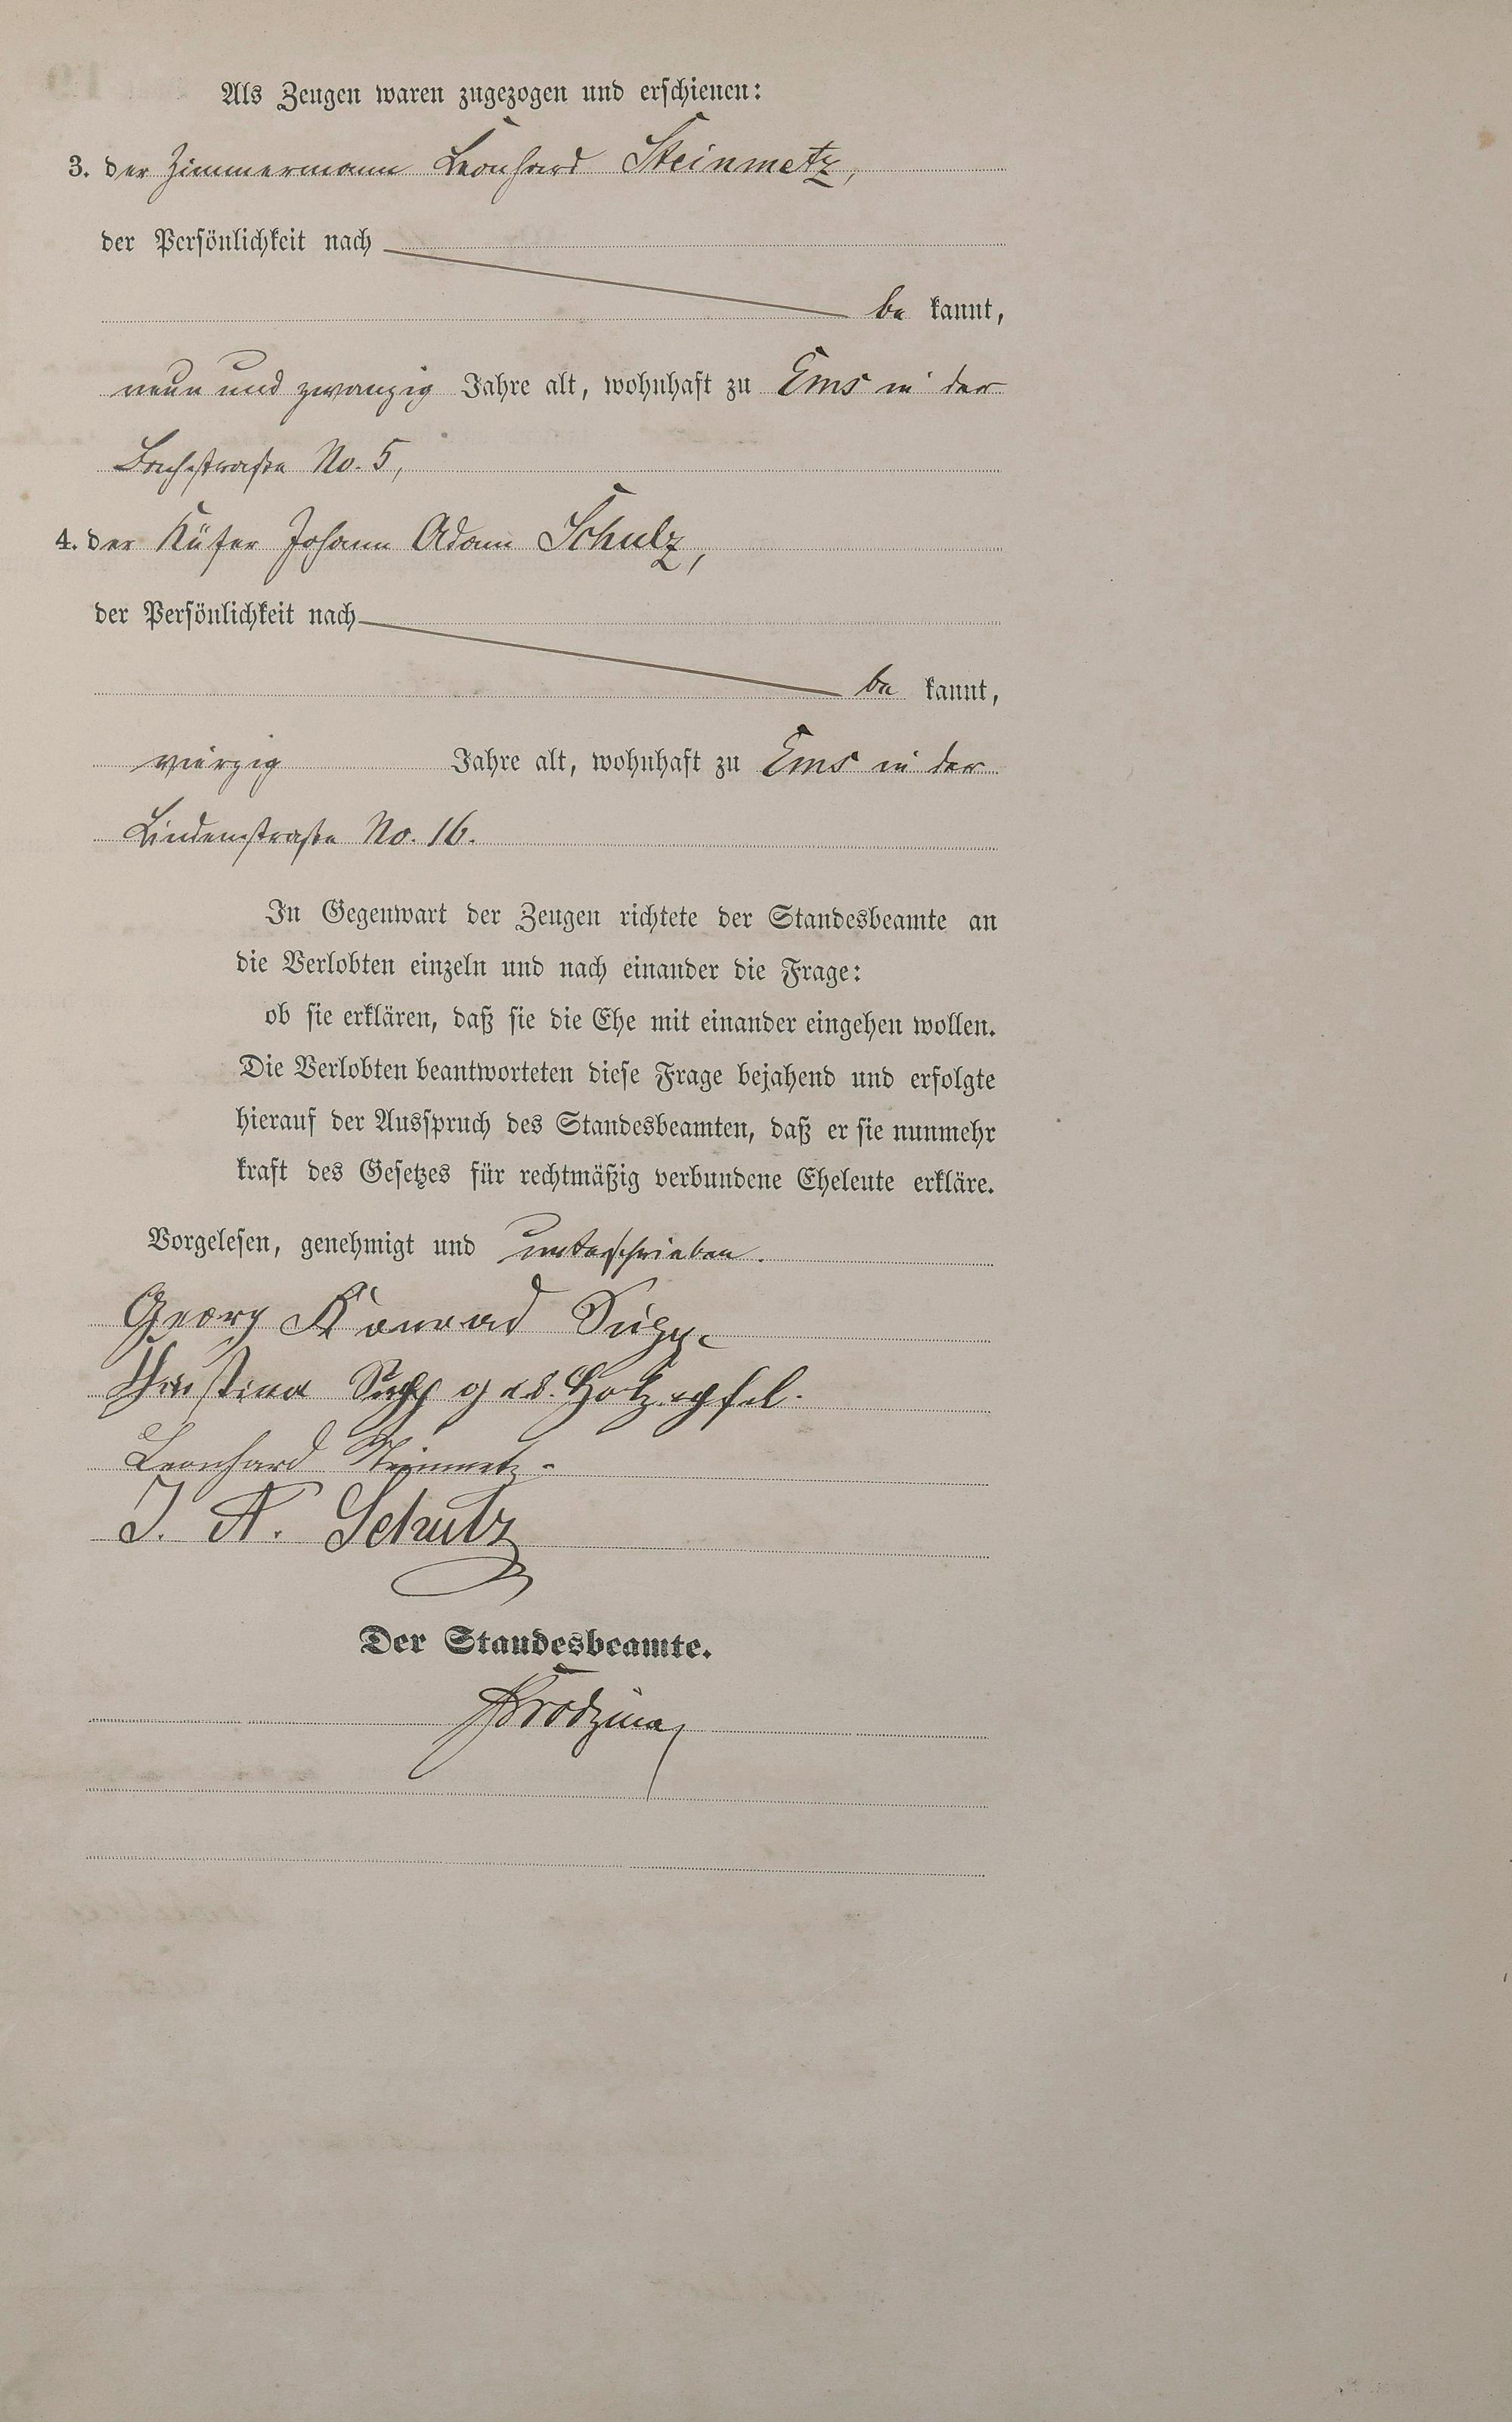 Als Zeugen waren zugezogen und erschienen:
3. der Zimmermann Leonhard Steinmetz,
der Persönlichkeit nach
be kannt,
neun und zwanzig Jahre alt, wohnhaft zu Ems in der
Bachstraße No. 5,
4. der Küfer Johann Adam Schulz,
der Persönlichkeit nach
be kannt,
vierzig Jahre alt, wohnhaft zu Ems in der
Lindenstraße No. 16.
In Gegenwart der Zeugen richtete der Standesbeamte an
die Verlobten einzeln und nach einander die Frage:
ob sie erklären, daß sie die Ehe mit einander eingehen wollen.
Die Verlobten beantworteten diese Frage bejahend und erfolgte
hierauf der Ausspruch des Standesbeamten, daß er sie nunmehr
kraft des Gesetzes für rechtmäßig verbundene Eheleute erkläre.
Vorgelesen, genehmigt und unterschrieben.
Georg Konrad
Christina geb. Holzapfel.
Leonhard Steinmetz
J. A. Schulz
Der Standesbeamte.